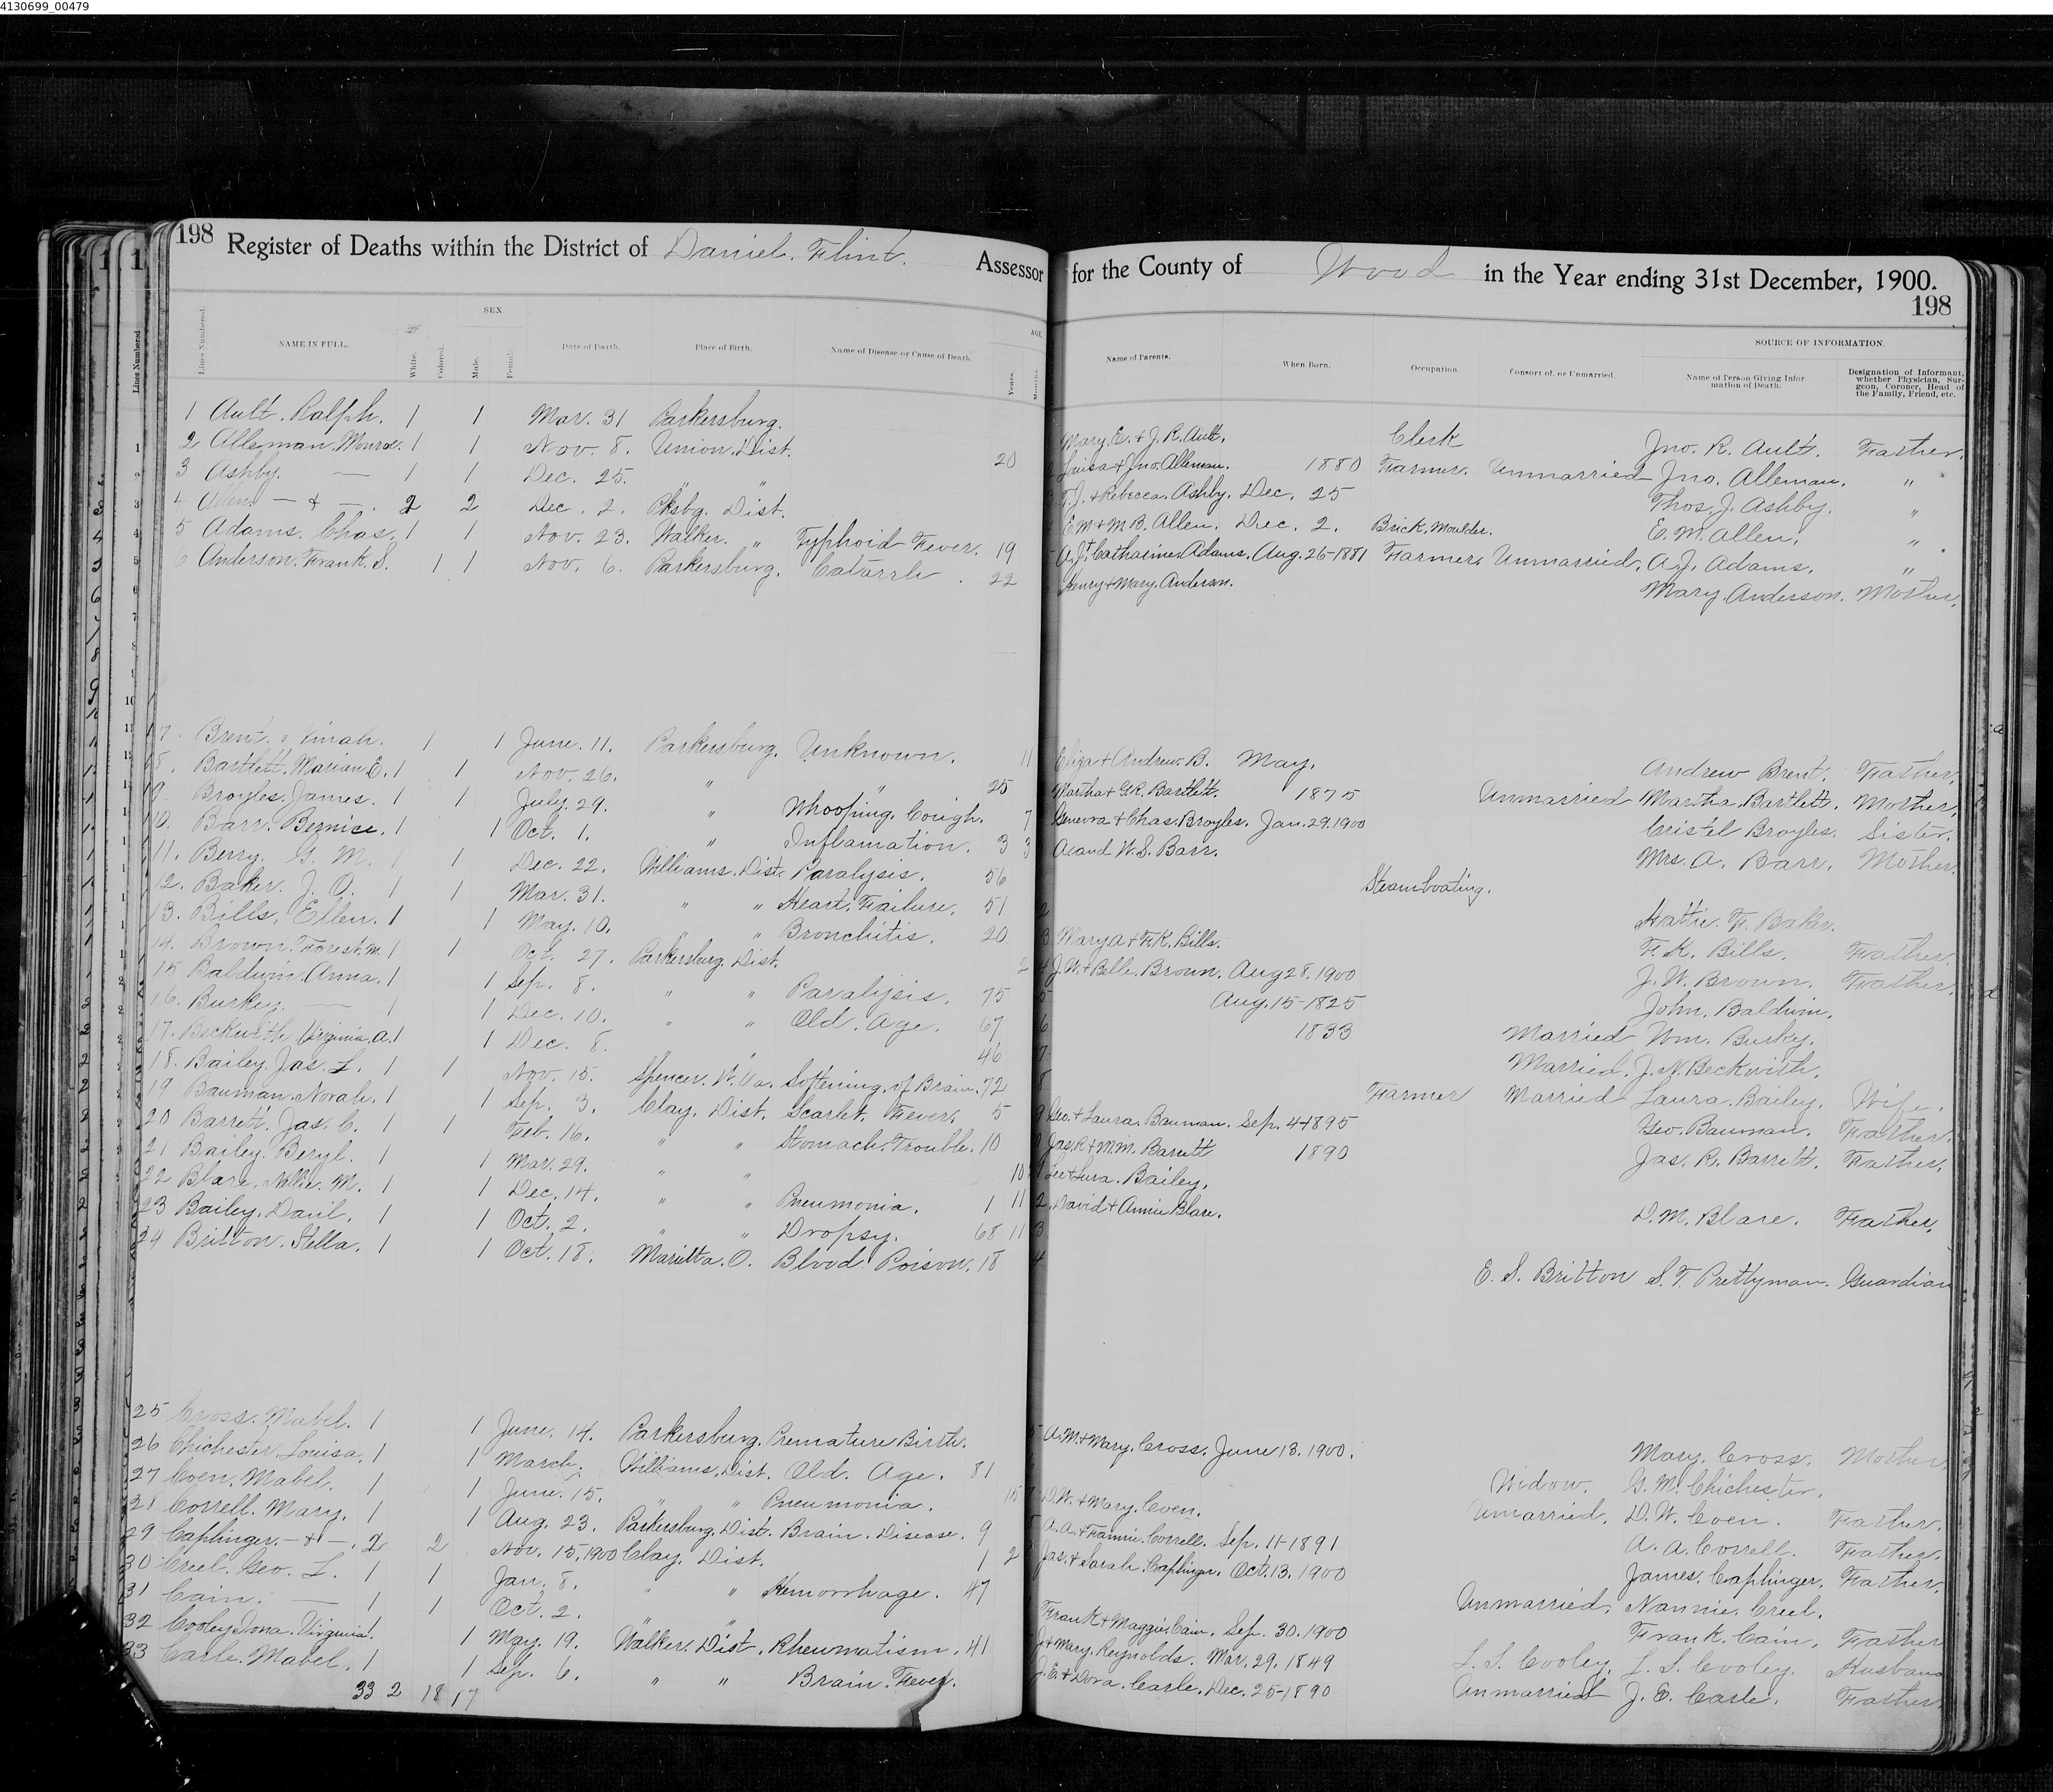 4130699_00479
198 Register of Deaths within the District of Daniel. Flint. Assessor for the County of Wood in the Year ending 31st December, 1900. 198
Lines Numbered. NAME IN FULL. White. Colored. SEX. Male. Female. Date of Death. Place of Birth. Name of Disease or Cause of Death. AGE Years. Months. Name of Parents. When Born. Occupation. Consort of, or Unmarried. SOURCE OF INFORMATION. Name of Person Giving Information of Death. Designation of Informant, whether Physician, Surgeon, Coroner, Head of the Family, Friend, etc.
1 Ault. Ralph. 1 1 Mar. 31 Parkersburg. Mary. E. + J. R. Ault. Clerk Jno. R. Ault. Father.
2 Alleman. Monroe. 1 1 Nov. 8. Union. Dist. 20 Louisa + Jno. Alleman. 1880 Farmer. Unmarried Jno. Alleman. "
3 Ashby. — 1 1 Dec. 25. " " T. J. + Rebecca. Ashby. Dec. 25 Thos. J. Ashby. "
4 Allen. — + —. 2 2 Dec. 2. Pksbg. Dist. E M + M B. Allen. Dec. 2. Brick. Moulder. E. M. Allen. "
5 Adams. Chas. 1 1 Nov. 23. Walker. " Typhoid Fever. 19 A. J. + Catharine. Adams. Aug. 26-1881 Farmer. Unmarried. A. J. Adams. "
6 Anderson. Frank. S. 1 1 Nov. 6. Parkersburg. Catarrh. 22 Henry + Mary. Anderson. Mary. Anderson. Mother.
7. Brent. 1 1 June. 11. Parkersburg. Unknown. 11 Eliza + Andrew. B. May. Andrew Brent. Father.
8. Bartlett. Marian. E. 1 1 Nov. 26. " " 25 Martha + G. R. Bartlett. 1875 Unmarried Martha. Bartlett. Mother.
9. Broyles. James. 1 1 July. 29. " Whooping. Cough. 7 Genevra + Chas. Broyles. Jan. 29. 1900 Cristel Broyles. Sister.
10. Barr. Bernice. 1 1 Oct. 1. " Inflamation. 3 3 A. and W. S. Barr. Mrs. A. Barr. Mother.
11. Berry. G. M. 1 1 Dec. 22. Williams. Dist. Paralysis. 56 Steamboating.
12. Baker. J. O. 1 1 Mar. 31. " " Heart. Failure. 51 Hattie. F. Baker.
13. Bills. Ellen. 1 1 May. 10. " " Bronchitis. 20 Mary A + F. K. Bills. F. K. Bills. Father.
14. Brown. Forest. M. 1 1 Oct. 27. Parkersburg. Dist. 2 J. W. + Belle. Brown. Aug 28. 1900 J. W. Brown. Father.
15 Baldwin. Anna. 1 1 Sep. 8. " " Paralysis. 75 Aug. 15-1825 John. Baldwin.
16. Burkey. — 1 1 Dec. 10. " " Old. Age. 67 1833 Married Wm. Burky.
17. Beckwith. Virginia. A. 1 1 Dec. 8. " 46 Married. J. N. Beckwith.
18. Bailey. Jas. L. 1 1 Nov. 15. Spencer. W. Va. Softening. of Brain. 72 Farmer Married Laura. Bailey. Wife.
19 Bauman. Norah. 1 1 Sep. 3. Clay. Dist. Scarlet. Fever. 5 Geo. + Laura. Bauman. Sep. 4-1895 Geo. Bauman. Father.
20 Barrett. Jas. C. 1 1 Feb. 16. " " Stomach. Trouble. 10 Jas. R + M. M. Barrett 1890 Jas. R. Barrett. Father.
21 Bailey. Beryl. 1 1 Mar. 29. " " 10 Lee + Lura. Bailey.
22 Blare. Nellie. M. 1 1 Dec. 14. " " Pneumonia. 1 11 David + Annie Blare. D. M. Blare. Father.
23 Bailey. Danl. 1 1 Oct. 2. " " Dropsy. 68 11
24 Britton. Stella. 1 1 Oct. 18. Marietta. O. Blood. Poison. 18 E. S. Britton S. T. Prettyman. Guardian
25 Cross. Mabel. 1 1 June. 14. Parkersburg. Premature Birth. A. M. + Mary. Cross. June 13. 1900. Mary. Cross. Mother.
26 Chichester. Louisa. 1 1 March. Williams. Dist. Old. Age. 81 Widow. G. M. Chichester.
27 Coen. Mabel. 1 1 June. 15. " " Pneumonia. 15 D. W. + Mary. Coen. Unmarried. D. W. Coen. Father.
28 Correll. Mary. 1 1 Aug. 23. Parkersburg. Dist. Brain. Disease. 9 A. A. + Fannie. Correll. Sep. 11-1891 A. A. Correll. Father.
29 Caplinger. — + —. 2 2 Nov. 15, 1900 Clay. Dist. 1 2 Jas. + Sarah. Caplinger. Oct. 13. 1900 James. Caplinger. Father.
30 Creel. Geo. L. 1 1 Jan. 8. " " Hemorrhage. 47 Unmarried. Nannie. Creel.
31 Cain. — 1 1 Oct. 2. " " Frank + Maggie. Cain. Sep. 30. 1900 Frank. Cain. Father
32 Cooley Iona. Virginia. 1 May. 19. Walker. Dist. Rheumatism. 41 J + Mary. Reynolds. Mar. 29. 1849 L. S. Cooley. L. S. Cooley. Husband
33 Carle. Mabel. 1 1 Sep. 6. " " Brain. Fever. J. E. + Dora. Carle. Dec. 25-1890 Unmarried J. E. Carle. Father.
33 2 18 17